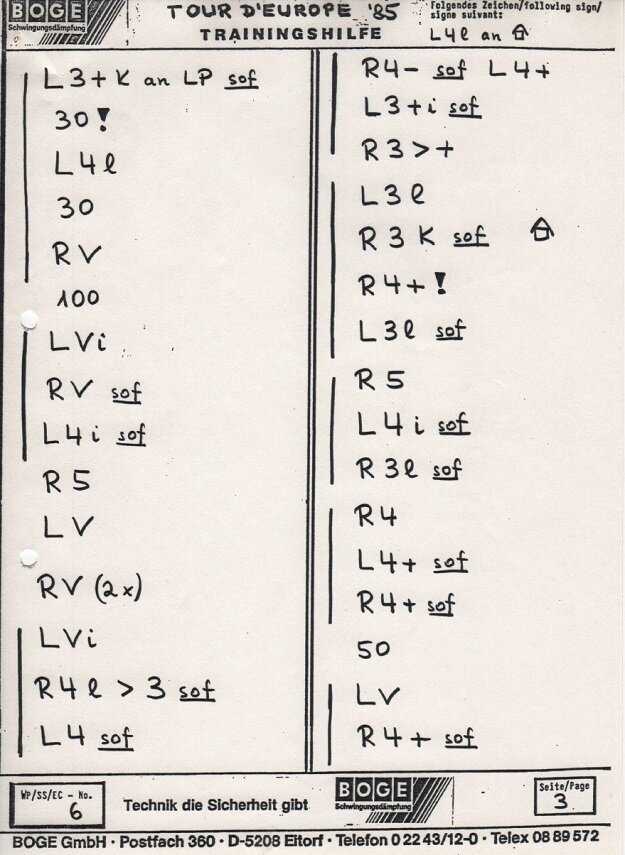 BOGE
Schwingungsdämpfung
TOUR D'EUROPE '85
TRAININGSHILFE
Folgendes Zeichen/following sign/
signe suivant:
L4l an
L3+K an LP sof
30!
L4l
30
RV
100
LVi
RV sof
L4i sof
R5
LV
RV (2x)
LVi
R4l > 3 sof
L4 sof
R4- sof L4+
L3+i sof
R3>+
L3l
R3K sof
R4+!
L3l sof
R5
L4i sof
R3l sof
R4
L4+ sof
R4+ sof
50
LV
R4+ sof
WP/SS/EC - No.
6
Technik die Sicherheit gibt
BOGE
Schwingungsdämpfung
Seite/Page
3
BOGE GmbH · Postfach 360 · D-5208 Eitorf · Telefon 0 22 43/12-0 · Telex 08 89 572